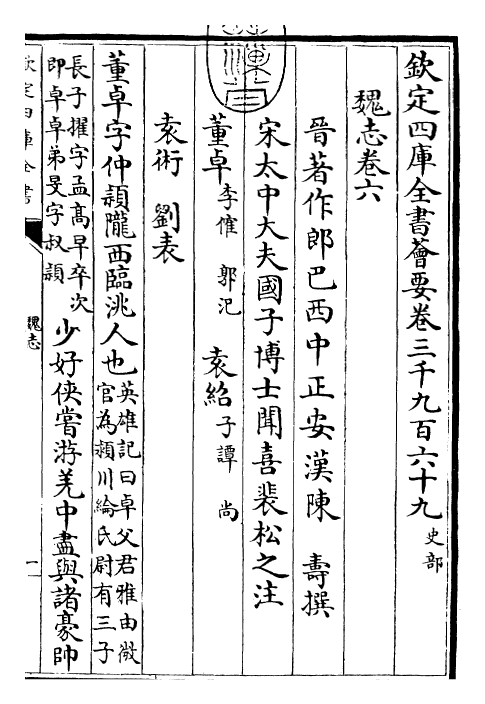 欽定四庫全書薈要卷三千九百六十九 史部
魏志卷六
晉著作郎巴西中正安漢陳 壽撰
宋太中大夫國子博士聞喜裴松之注
董卓 李傕 郭汜 袁紹 子譚 尚
袁術 劉表
董卓字仲頴隴西臨洮人也 英雄記曰卓父君雅由微
官為潁川綸氏尉有三子
長子擢字孟髙早卒次
即卓卓弟旻字叔頴 少好俠嘗游羌中盡與諸豪帥
欽定四庫全書
魏志
一